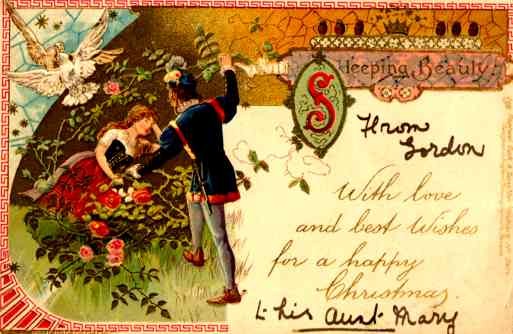 Sleeping Beauty.
From
Gordon
With love
and best Wishes
for a happy
Christmas.
to his Aunt Mary